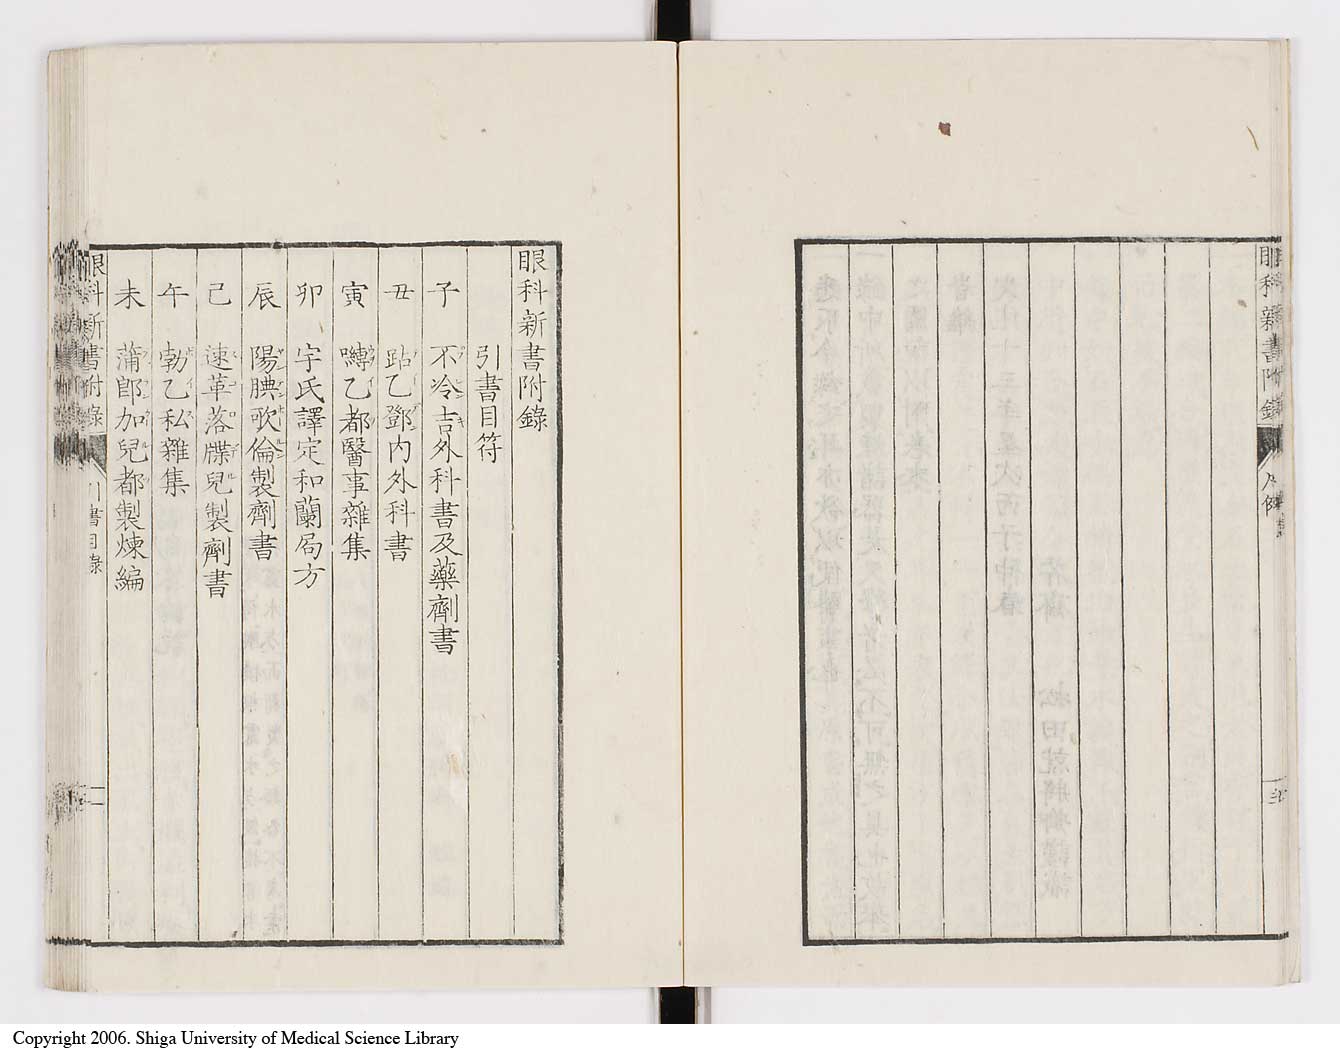 眼科新書附錄
眼科新書附錄
引書目符
子 不冷吉外科書及藥劑書
丑 跕乙鄧內外科書
寅 囀乙都醫事雜集
卯 宇氏譯定和蘭局方
辰 陽腆歌倫製劑書
巳 速革落牒兒製劑書
午 勃乙私雜集
未 蒲郎加兒都製煉編
眼科新書附錄
引書目錄
Copyright 2006. Shiga University of Medical Science Library